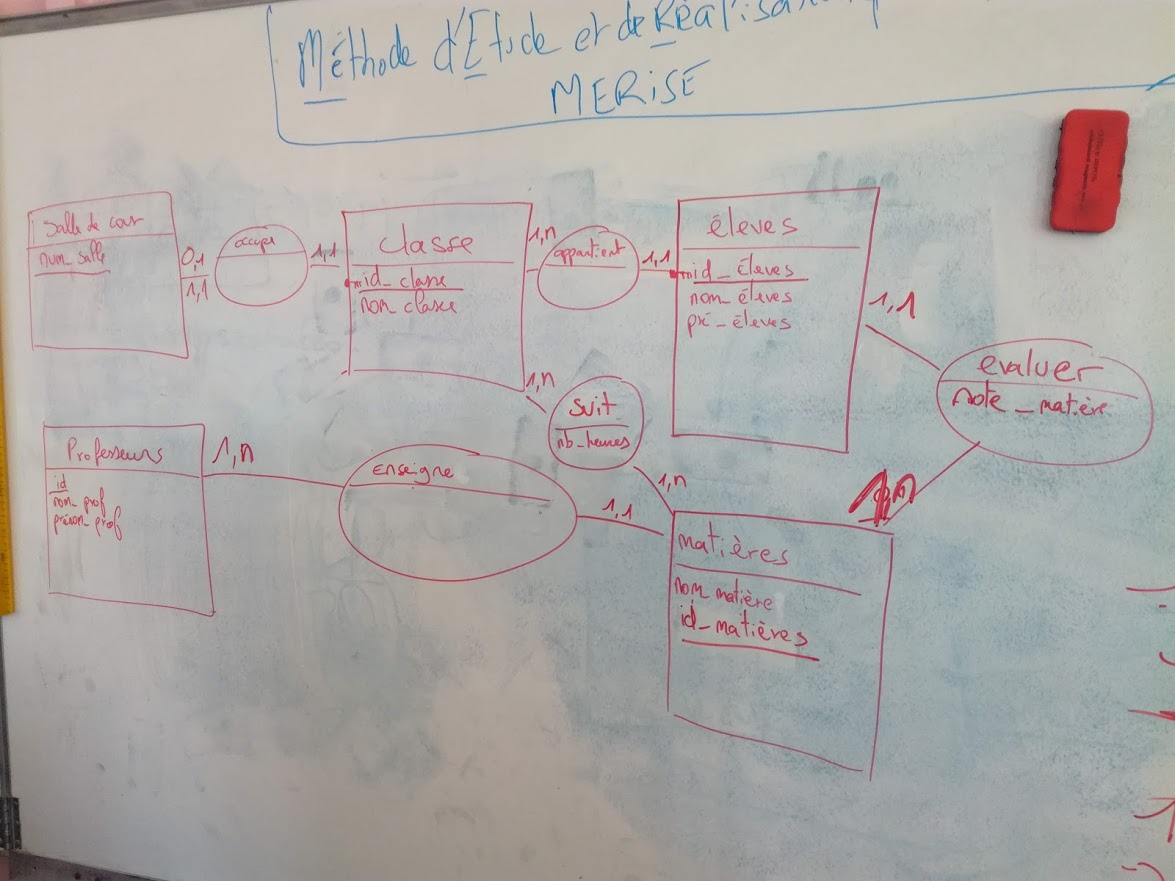 Méthode d'Etude et de Réalisa
MERISE
salle de cour
num_salle
0,1
1,1
occupe
1,1
classe
id_classe
nom classe
1,n
appartient
1,1
éleves
id_éleves
nom_éleves
pré_éleves
1,1
evaluer
note_matière
1,n
suit
nb_heures
1,n
Professeurs
id
nom_prof
prénom_prof
1,n
Enseigne
1,1
matières
nom matière
id_matières